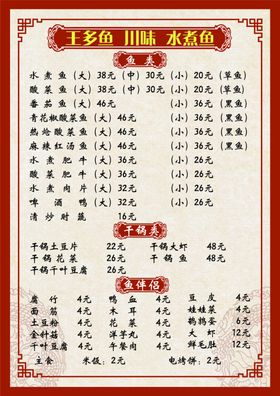 王多鱼 川味 水煮鱼
鱼类
水煮鱼(大)38元(中)30元(小)20元(草鱼)
酸菜鱼(大)38元(中)30元(小)20元(草鱼)
番茄鱼(大)46元(小)36元(黑鱼)
青花椒酸菜鱼(大)46元(小)36元(黑鱼)
热炝酸菜鱼(大)46元(小)36元(黑鱼)
麻辣红汤鱼(大)46元(小)36元(黑鱼)
水煮肥牛(大)36元(小)26元
酸菜肥牛(大)36元(小)26元
水煮肉片(大)32元(小)26元
啤酒鸭(大)36元(小)26元
清炒时蔬 16元
干锅类
干锅土豆片 22元 干锅大虾 48元
干锅花菜 26元 干锅鱼 48元
干锅千叶豆腐 26元
鱼伴侣
腐竹 4元 鸭血 4元 豆皮 4元
面筋 4元 木耳 4元 娃娃菜 4元
土豆粉 4元 花菜 4元 鹌鹑蛋 6元
金针菇 4元 洋芋丸 4元 大虾 12元
千叶豆腐 4元 午餐肉 4元 鲜毛肚 12元
主食 米饭:2元 电烤饼:2元